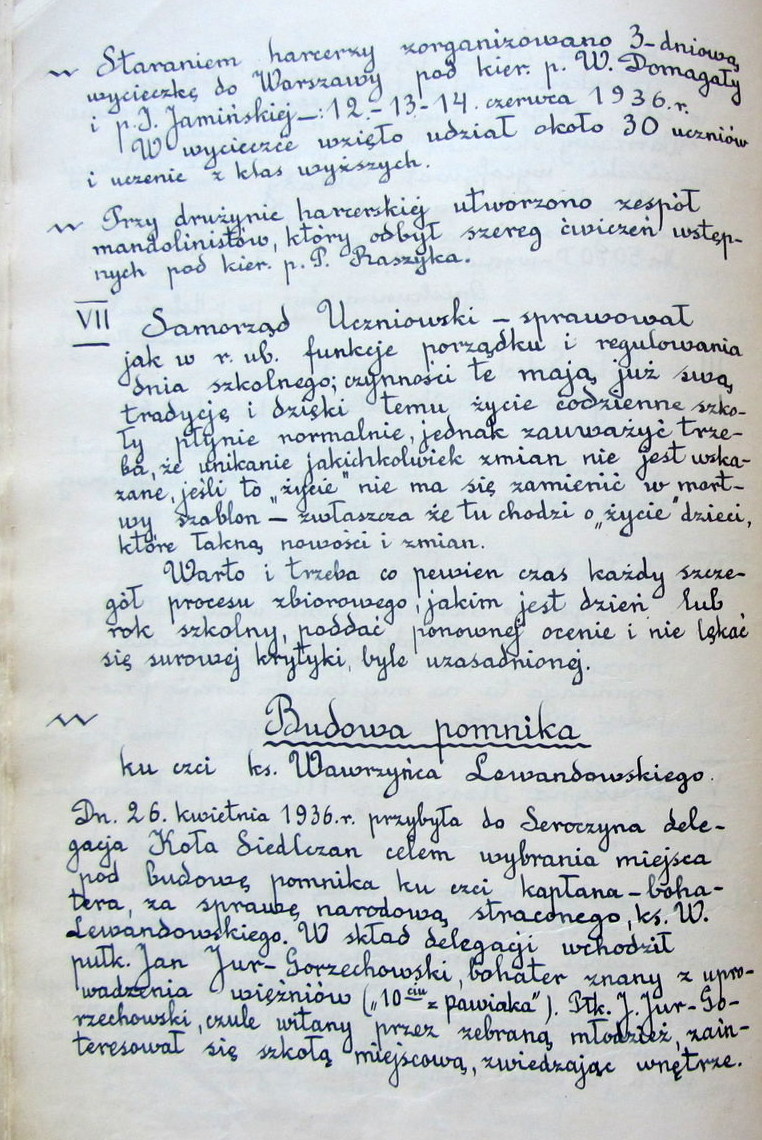 Staraniem harcerzy zorganizowano 3-dniową
wycieczkę do Warszawy pod kier. p. W. Domagały
i p. J. Jamińskiej —: 12.-13-14. czerwca 1936.r.
W wycieczce wzięło udział około 30 uczniów
i uczenic z klas wyższych.
Przy drużynie harcerskiej utworzono zespół
mandolinistów, który odbył szereg ćwiczeń wstęp-
nych pod kier. p. P. Raszyka.
VII Samorząd Uczniowski – sprawował
jak w r. ub. funkcje porządku i regulowania
dnia szkolnego; czynności te mają już swą
tradycję i dzięki temu życie codzienne szko-
ły płynie normalnie, jednak zauważyć trze-
ba, że unikanie jakichkolwiek zmian nie jest wska-
zane, jeśli to „życie" nie ma się zamienić w mart-
wy szablon – zwłaszcza że tu chodzi o „życie" dzieci,
które łakną nowości i zmian.
Warto i trzeba co pewien czas każdy szcze-
gół procesu zbiorowego, jakim jest dzień lub
rok szkolny, poddać ponownej ocenie i nie lękać
się surowej krytyki, byle uzasadnionej.
Budowa pomnika
ku czci ks. Wawrzyńca Lewandowskiego.
Dn. 26. kwietnia 1936.r. przybyła do Seroczyna dele-
gacja Koła Siedlczan celem wybrania miejsca
pod budowę pomnika ku czci kapłana – boha-
tera, za sprawę narodową straconego, ks. W.
Lewandowskiego. W skład delegacji wchodził
pułk. Jan Jur-Gorzechowski, bohater znany z upro-
wadzenia więźniów („10ciu z pawiaka"). Płk. J. Jur-Go-
rzechowski, czule witany przez zebraną młodzież, zain-
teresował się szkołą miejscową, zwiedzając wnętrze.